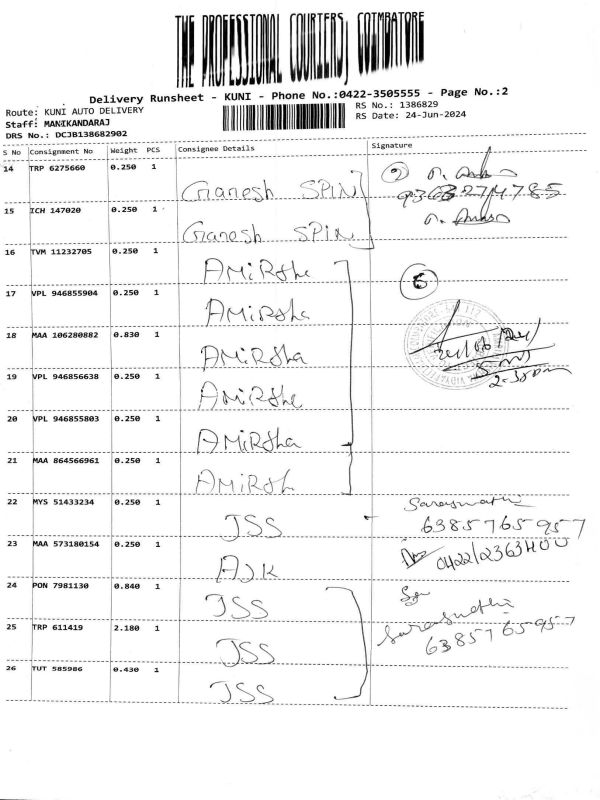 THE PROFESSIONAL COURIERS, COIMBATORE
Delivery Runsheet - KUNI - Phone No.:0422-3505555 - Page No.:2
Route: KUNI AUTO DELIVERY RS No.: 1386829
Staff: MANIKANDARAJ RS Date: 24-Jun-2024
DRS No.: DCJB138682902
S No Consignment No Weight PCS Consignee Details Signature
14 TRP 6275660 0.250 1 Ganesh SPIN 2
15 ICH 147020 0.250 1 Ganesh SPIN
16 TVM 11232705 0.250 1 AMiRtha
17 VPL 946855904 0.250 1 AMiRtha 6
18 MAA 106280882 0.830 1 AMiRtha 24/06/24
19 VPL 946856638 0.250 1 AMiRtha 2-30pm
20 VPL 946855803 0.250 1 AMiRtha
21 MAA 864566961 0.250 1 AMiRth
22 MYS 51433234 0.250 1 JSS Saraswathi
6385765957
23 MAA 573180154 0.250 1 AJK 0422/2363400
24 PON 7981130 0.840 1 JSS
25 TRP 611419 2.180 1 JSS Saraswathi
6385765957
26 TUT 585986 0.430 1 JSS